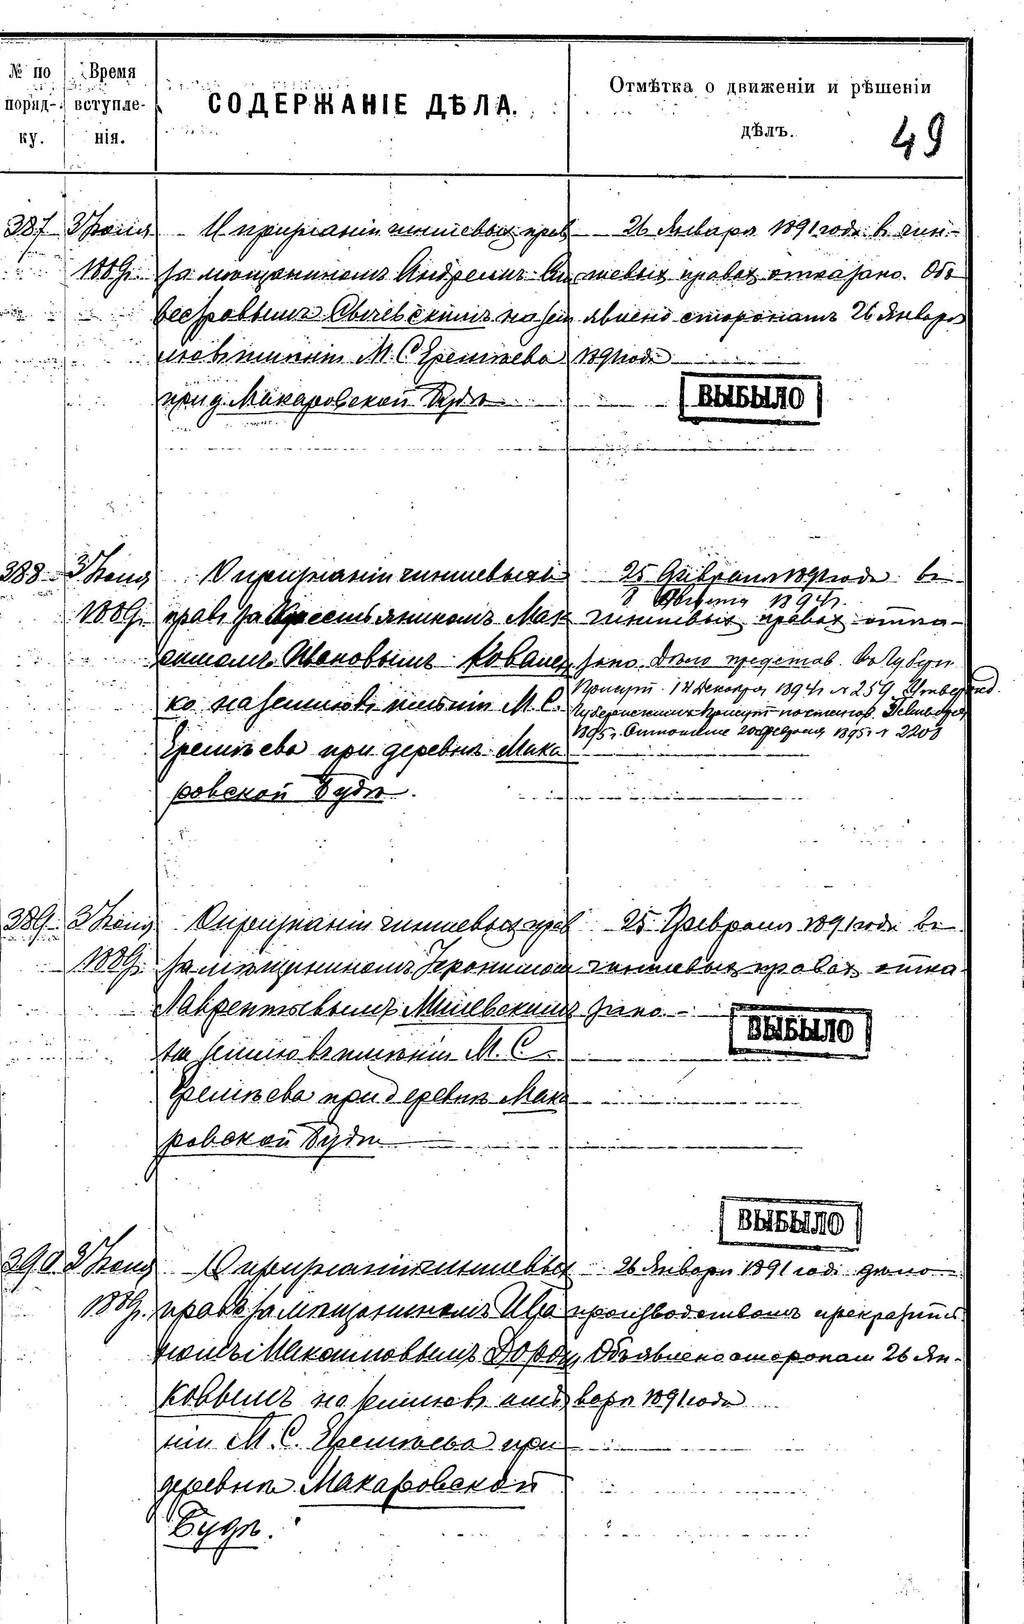 № по порядку.
Время вступленія.
СОДЕРЖАНІЕ ДѢЛА.
Отмѣтка о движеніи и рѣшеніи дѣлъ.
49
387
3 Іюня
1889г.
О признаніи чиншевыхъ прав
за мѣщаниномъ Андреемъ Сил
вестровымъ Свычевскимъ на зем
лю въ имѣніи М. С. Ерешѣева
при д. Макаровской Будѣ
26 Января 1891 года в чин-
шевых правах отказано. Объ
явлено сторонам 26 Января
1891 года
ВЫБЫЛО
388
3 Іюня
1889г.
О признаніи чиншевыхъ
правъ за Крестьяниномъ Мак
симомъ Ивановымъ Ковален
ко на землю въ имѣніи М. С.
Ерешѣева при деревнѣ Мака
ровской Будѣ.
25 Февраля 1891 года въ
8 Августа 1894г.
чиншевых правах отка-
зано. Дѣло представ. въ Губерн.
Присут. 14 Декабря 1894г № 259
Губернским Присут
1895г. Отношение 20 Февраля 1895г № 2208
389
3 Іюня
1889г.
О признаніи чиншевых прав
за мѣщаниномъ Іеронимом
Лаврентьевымъ
на землю въ имѣніи М. С.
Ерешѣева при деревнѣ Мака
ровской Будѣ
25 Февраля 1891 года въ
чиншевых правах отка-
зано
ВЫБЫЛО
390
3 Іюня
1889г.
О признаніи чиншевых
правъ за мѣщанином Ива
номъ Максимовымъ Дорош
ковымъ на землю въ имѣ
ніи М. С. Ерешѣева при
деревнѣ Макаровской
Будѣ.
ВЫБЫЛО
26 Января 1891 года дѣло
производством прекратить
Объявлено сторонам 26 Ян-
варя 1891 года